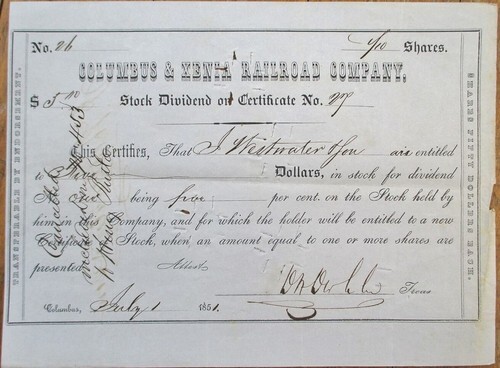 No. 26 1/10 Shares.
COLUMBUS & XENIA RAILROAD COMPANY,
$ 5.00 Stock Dividend on Certificate No. 27
This Certifies, That J Westwater & Son are entitled
to Five Dollars, in stock for dividend
No. one being five per cent. on the Stock held by
him in this Company, and for which the holder will be entitled to a new
Certificate of Stock, when an amount equal to one or more shares are
presented.
Attest
Treas
Columbus, July 1 1851.
TRANSFERABLE BY ENDORSEMENT.
SHARES FIFTY DOLLARS EACH.
Cancelled